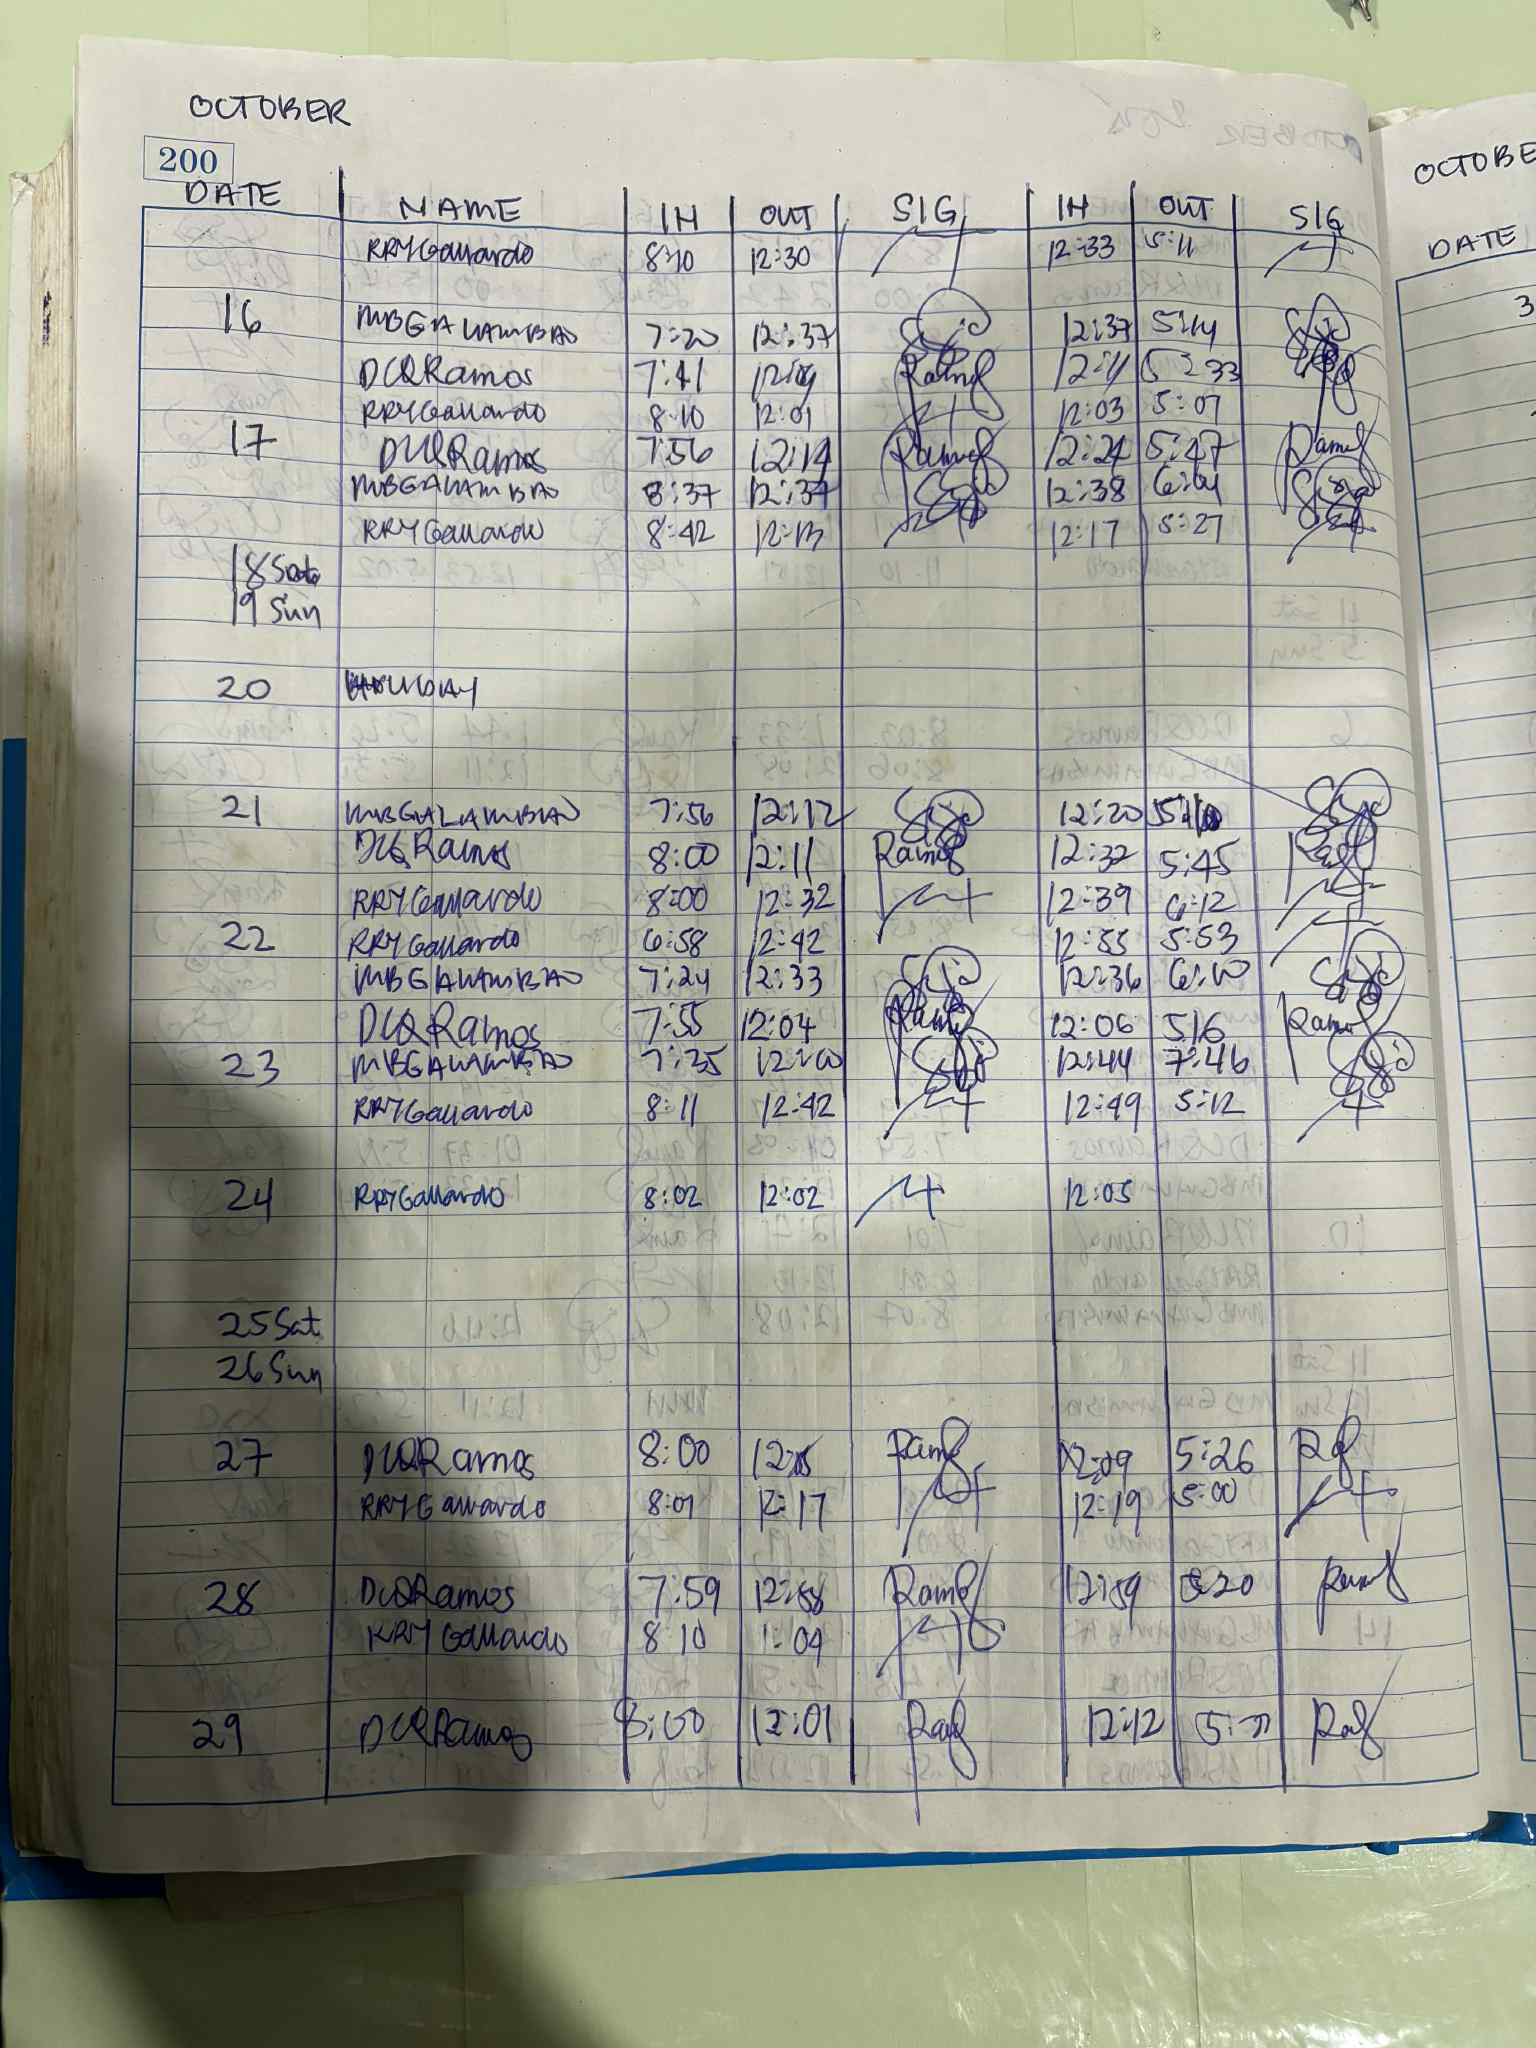 OCTOBER
200
DATE NAME IN OUT SIG IN OUT SIG
RRYGallardo 8:10 12:30 12:33 5:11
16 MBGALAMBAO 7:20 12:37 12:37 5:14
DCQRamos 7:41 5:33
RRYGallardo 8:10 12:01 12:03 5:07
17 DCQRamos 7:56 12:14 12:24 5:47
MBGALAMBAO 8:37 12:37 12:38
RRYGallardo 8:42 12:13 12:17 5:27
18 Sat
19 Sun
20
21 MBGALAMBAO 7:56 12:12 12:20
DCQRamos 8:00 12:11 12:32 5:45
RRYGallardo 8:00 12:32 12:39 6:12
22 RRYGallardo 6:58 12:42 12:55 5:53
MBGALAMBAO 7:24 12:33 12:36 6:10
DCQRamos 7:55 12:04 12:06 516
23 MBGALAMBAO 7:35 12:44 7:46
RRYGallardo 8:11 12:42 12:49 5:12
24 RRYGallardo 8:02 12:02 12:05
25 Sat
26 Sun
27 DCQRamos 8:00 12:09 5:26
RRYGallardo 8:01 12:17 12:19 5:00
28 DCQRamos 7:59
RRYGallardo 8:10 1:04
29 DCQRamos 8:00 12:01 12:12
OCTOBE
DATE
3